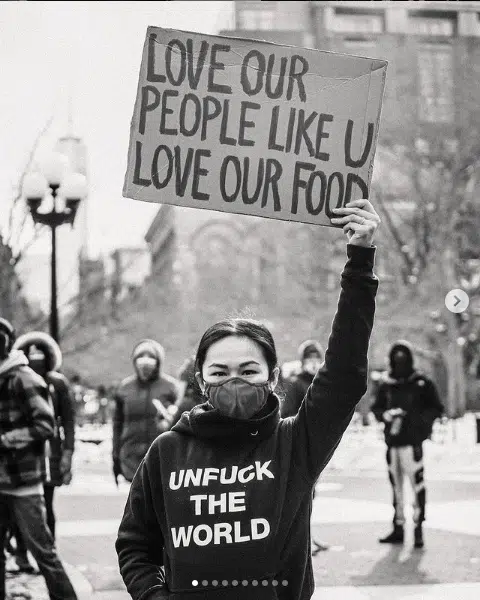 LOVE OUR
PEOPLE LIKE U
LOVE OUR FOOD
UNFUCK
THE
WORLD